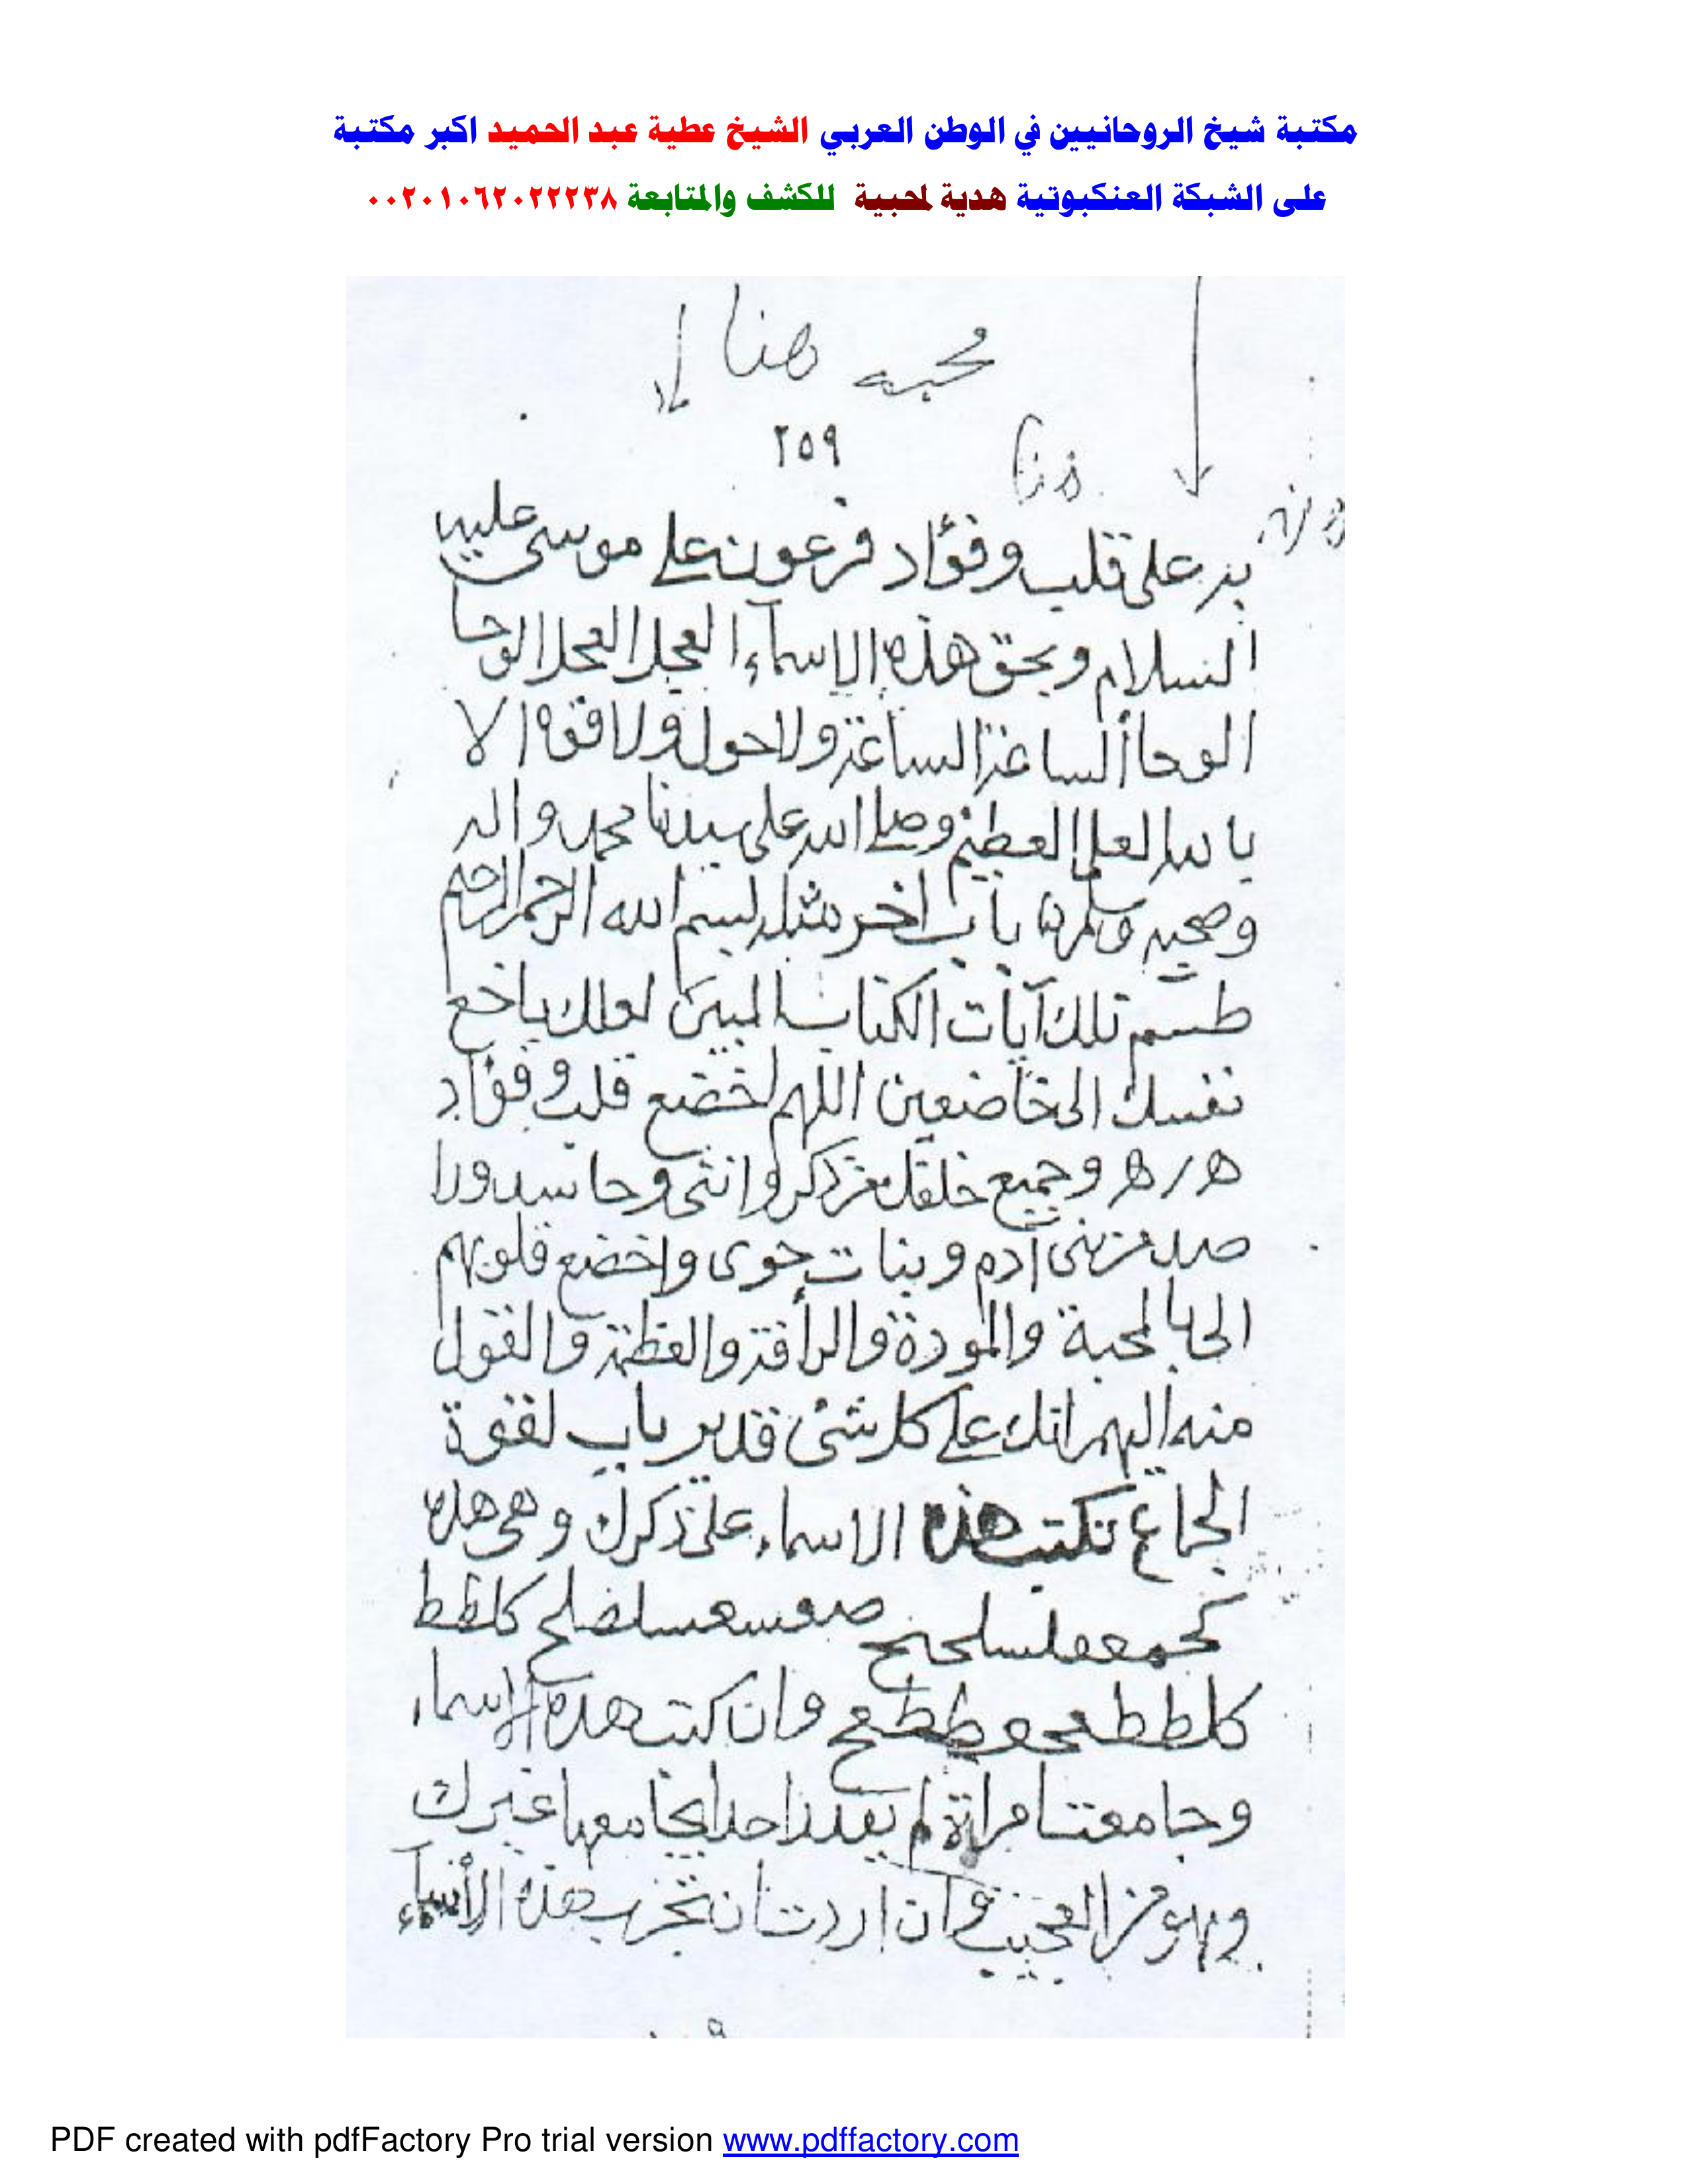 مكتبة شيخ الروحانيين في الوطن العربي الشيخ عطية عبد الحميد اكبر مكتبة
على الشبكة العنكبوتية هدية لمحبية للكشف والمتابعة ٠٠٢٠١٠٦٢٠٢٢٢٣٨
محبه هنا
٢٥٩
هنا
على قلب وفؤاد فرعون على موسى عليه
السلام وبحق هذه الاسماء العجل العجل الوحا
الوحا الساعة الساعة ولا حول ولا قوه الا
بالله العلي العظيم وصلى الله على سيدنا محمد واله
وصحبه وسلم باب اخر مثله بسم الله الرحمن الرحيم
طسم تلك آيات الكتاب المبين لعلك باخع
نفسك الى خاضعين اللهم اخضع قلب وفؤاد
ه ره وجميع خلقك من ذكر وانثى وحاسد ورا
صد من بنى آدم وبنات حوى واخضع قلوبهم
الى بالمحبة والمودة والرأفة والقول
منه اليهم انك على كل شئ قدير باب لقوة
الجماع تكتب هذه الاسماء على ذكرك وهى هذه
كلطط
وان كتب هذه الاسماء
وجامعت امراة لم احدا يجامعها غيرك
وهو من العجيب وان اردت ان تجرب هذه الأسماء
PDF created with pdfFactory Pro trial version www.pdffactory.com